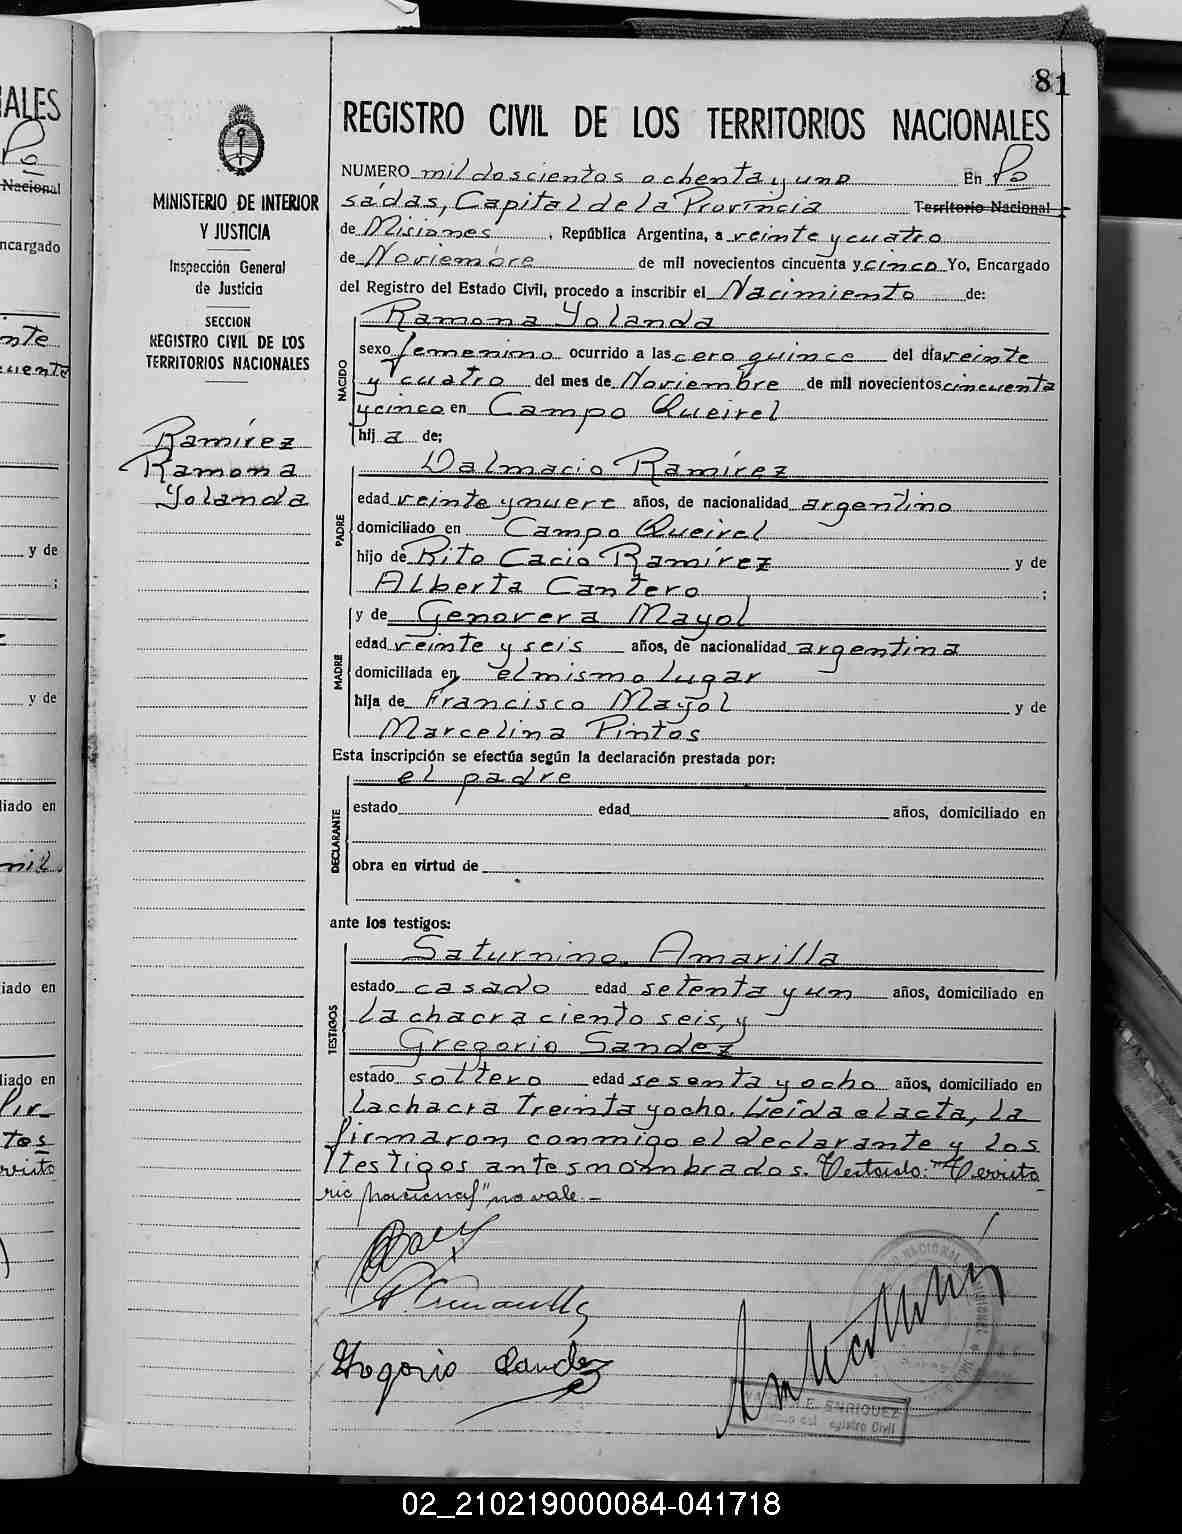 81
REGISTRO CIVIL DE LOS TERRITORIOS NACIONALES
MINISTERIO DE INTERIOR
Y JUSTICIA
Inspección General
de Justicia
SECCION
REGISTRO CIVIL DE LOS
TERRITORIOS NACIONALES
Ramírez
Ramona
Yolanda
NUMERO mil doscientos ochenta y uno En Po
sadas, Capital de la Provincia Territorio Nacional
de Misiones, República Argentina, a veinte y cuatro
de Noviembre de mil novecientos cincuenta y cinco Yo, Encargado
del Registro del Estado Civil, procedo a inscribir el Nacimiento de:
NACIDO
Ramona Yolanda
sexo femenino ocurrido a las cero quince del día veinte
y cuatro del mes de Noviembre de mil novecientos cincuenta
y cinco en Campo Queirel
hij a de;
PADRE
Dalmacio Ramírez
edad veinte y nueve años, de nacionalidad argentino
domiciliado en Campo Queirel
hijo de Rito Cacio Ramírez y de
Alberta Cantero ;
y de Genovera Mayol
MADRE
edad veinte y seis años, de nacionalidad argentina
domiciliada en el mismo lugar
hija de Francisco Mayol y de
Marcelina Pintos
Esta inscripción se efectúa según la declaración prestada por:
el padre
DECLARANTE
estado edad años, domiciliado en
obra en virtud de
ante los testigos:
Saturnino Amarilla
TESTIGOS
estado casado edad setenta y un años, domiciliado en
la chacra ciento seis, y
Gregorio Sandez
estado soltero edad sesenta y ocho años, domiciliado en
la chacra treinta y ocho. Leída el acta, la
firmaron conmigo el declarante y los
testigos antes nombrados. Testado: "Territo
rio Nacional" no vale.-
Gregorio Sandez
E. ENRIQUEZ
Registro Civil
ALES
Po
Nacional
ncargado
y de
;
y de
liado en
mil
iado en
liado en
02_210219000084-041718